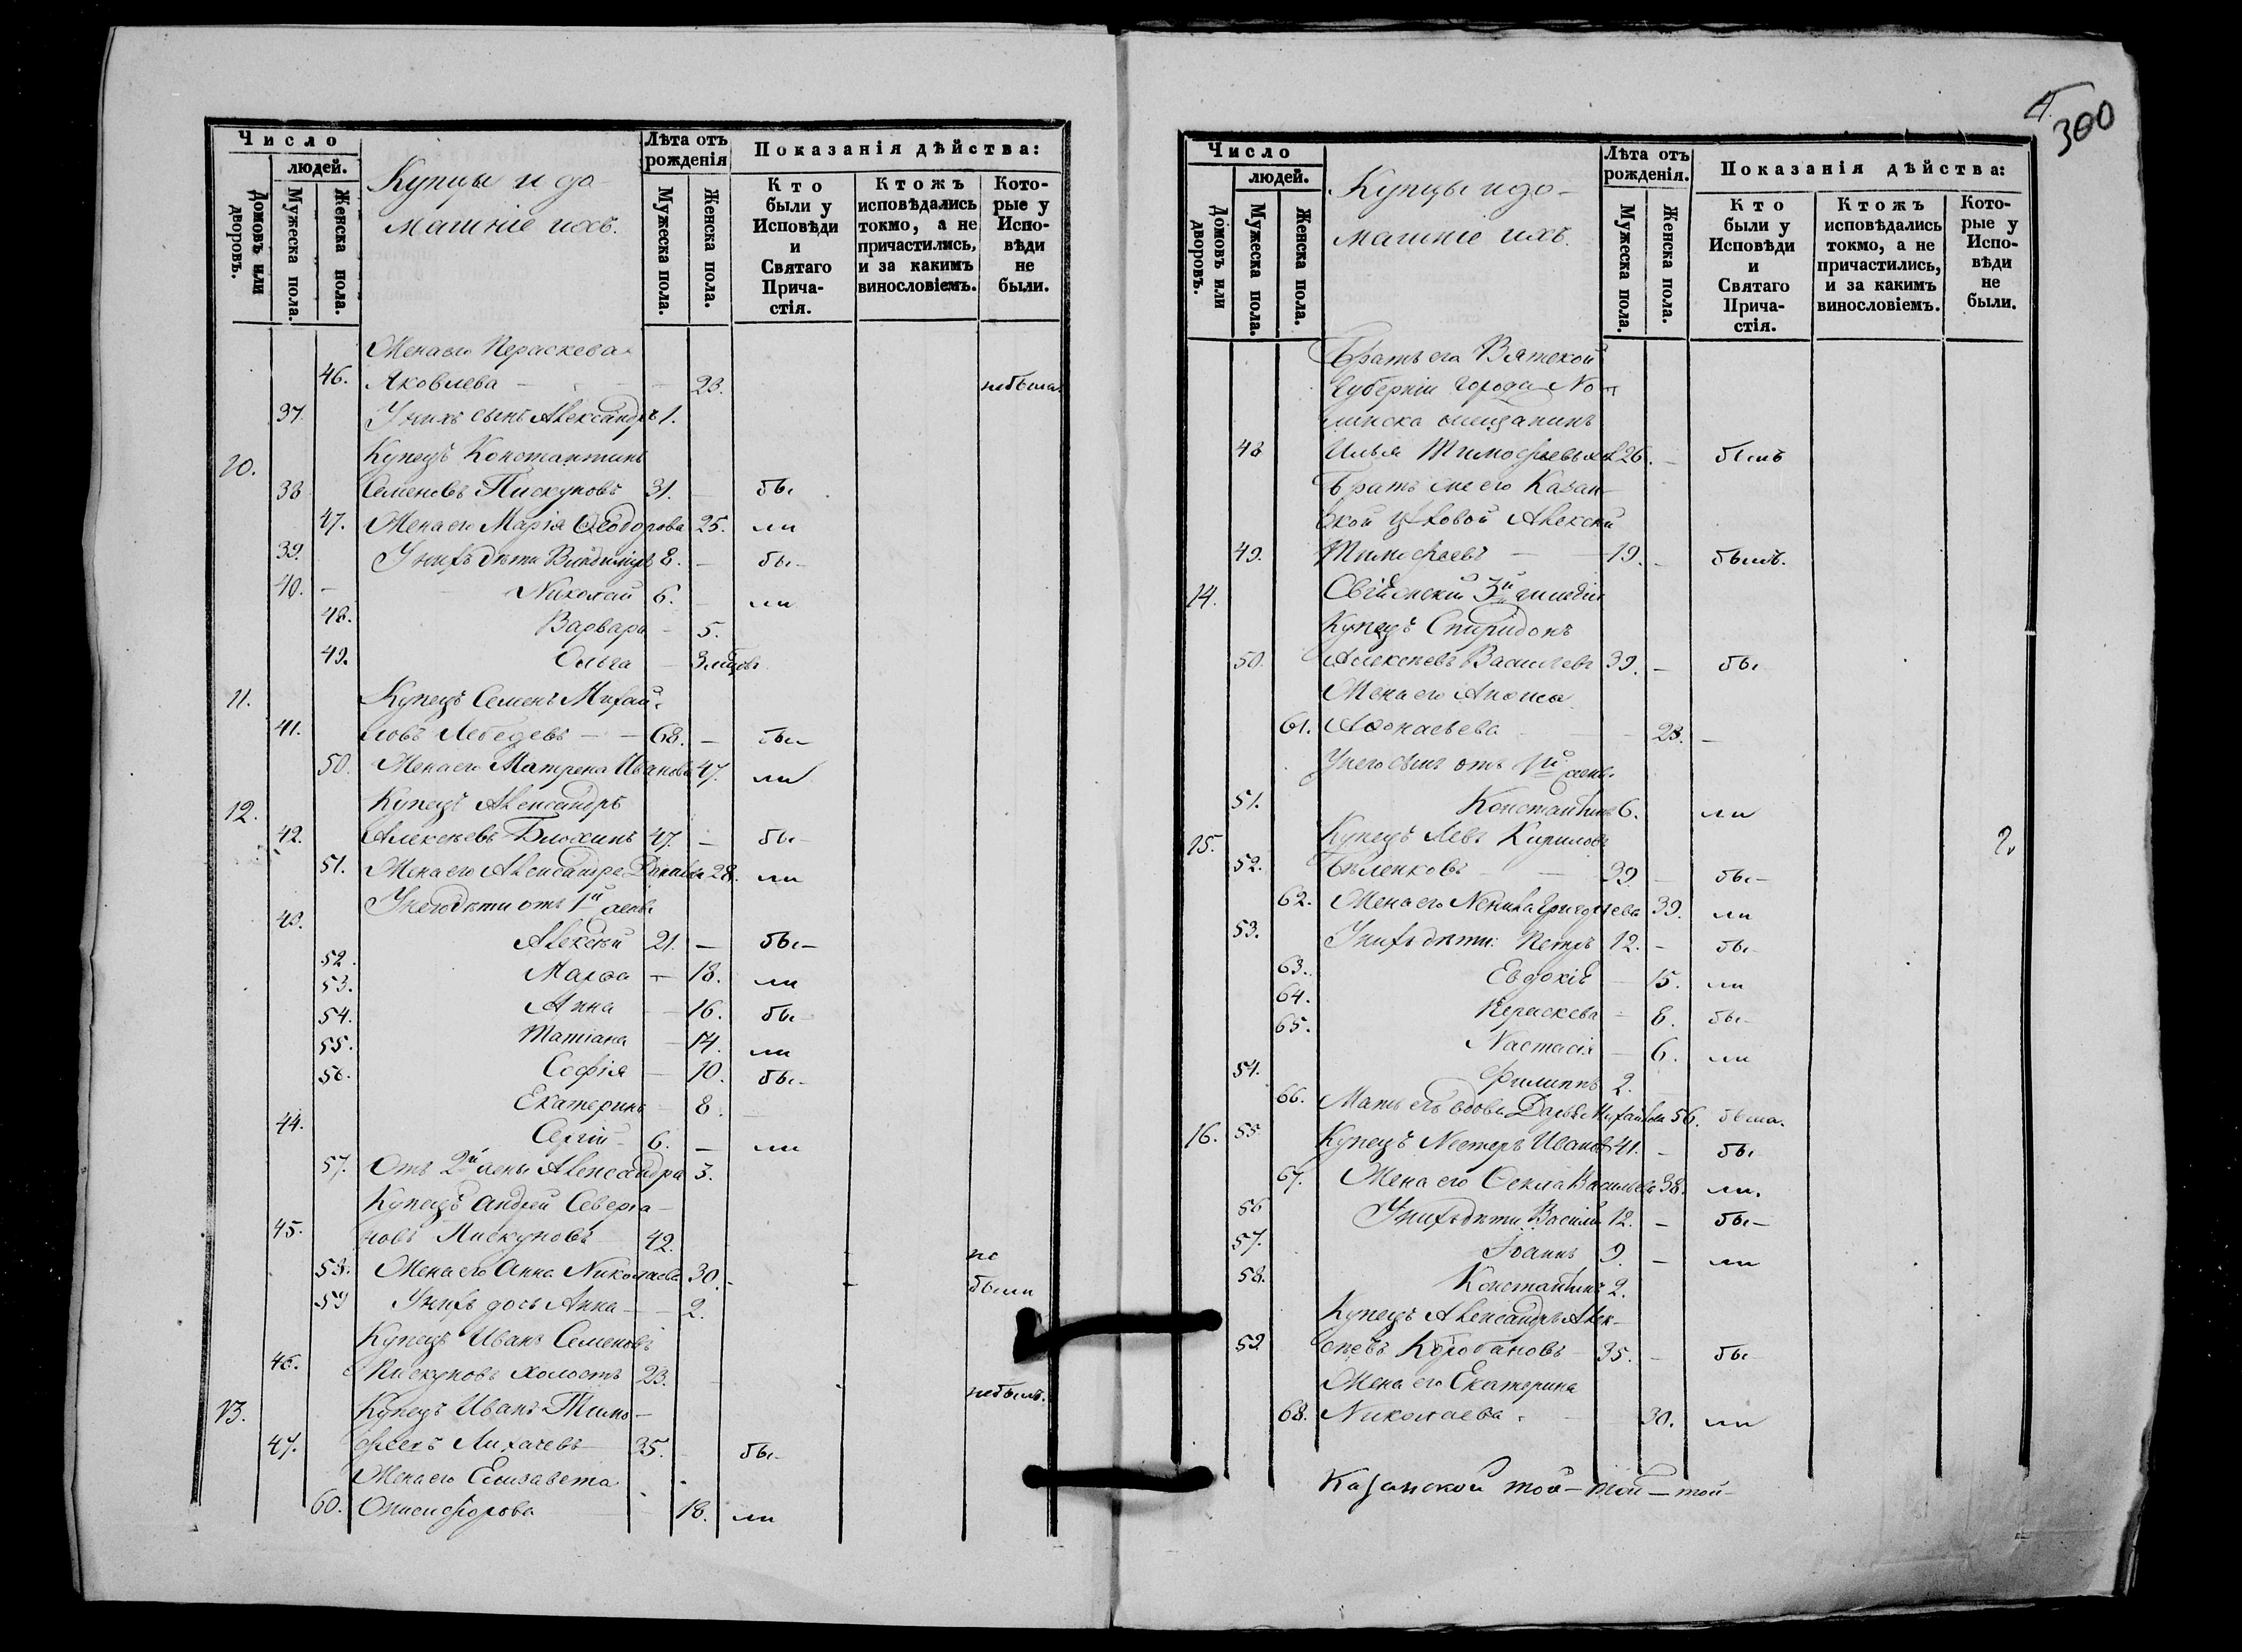 Число
людей.
Домовъ или дворовъ.
Мужеска пола.
Женска пола.
Купцы и до
машніе ихъ.
Лѣта отъ рожденія
Мужеска пола.
Женска пола.
Показанія дѣйства:
Кто были у Исповѣди и Святаго Прича-стія.
Ктожъ исповѣдались токмо, а не причастились, и за какимъ винословіемъ.
Кото-рые у Испо-вѣди не были.
Жена его Параскева
46. Яковлева — 23. не была
37. У нихъ сынъ Александръ 1.
10. Купецъ Константинъ
38 Семеновъ Пискуновъ 31. — бы
47. Жена его Марія Ѳеодорова 25. ли
39. У нихъ дѣти Владиміръ 8. — бы-
40. — Николай 6. — ли
48. Варвара — 5.
49. Ольга — 3
11. Купецъ Семенъ Михай-
41. ловъ Лебедевъ — — 68. — бы-
50. Жена его Матрена Иванова 47. ли
12. Купецъ Александръ
42. Алексѣевъ Блохинъ 47. — бы-
51. Жена его Александра 28. ли
У него дѣти отъ 1й жены
43. Алексѣй 21. — бы-
52. Марѳа — 18. ли
53. Анна — 16. бы-
54. Татіана — 14. ли
55. Софія — 10. бы-
56. Екатерина — 8. —
44. Сергій 6. — ли
57. Отъ 2й жены Александра 3.
Купецъ Андрей Северья-
45. новъ Пискуновъ 42. не
58. Жена его Анна Николаева 30. - были
59 У нихъ дочь Анна — — 2.
Купецъ Иванъ Семеновъ
46. Пискуновъ холостъ 23. не былъ.
13. Купецъ Иванъ Тимо-
47. феевъ Лихачевъ 35. бы-
Жена его Елизавета
60. Онисифорова 18. ли
4.
300
Число
людей.
Домовъ или дворовъ.
Мужеска пола.
Женска пола.
Купцы и до-
машніе ихъ.
Лѣта отъ рожденія.
Мужеска пола.
Женска пола.
Показанія дѣйства:
Кто были у Исповѣди и Святаго Прича-стія.
Ктожъ исповѣдались токмо, а не причастились, и за какимъ винословіемъ.
Кото-рые у Испо-вѣди не были.
Братъ его Вятской
Губерніи города Но-
линска мещанинъ
48 Илья Тимофеевъ 26. — былъ
Братъ же его Казан-
ской Алексѣй
49. Тимофеевъ — 19. — былъ.
14. 3й гильдіи
Купецъ Спиридонъ
50. Алексѣевъ Васильевъ 39. — бы
Жена его
61. Аѳонасьева — 23. —
У него сынъ отъ 1й жены
51. Константинъ 6. ли
15. Купецъ Левъ Кириловъ 2.
52. Бѣленковъ — 39 — бы-
62. Жена его Григорьева 39. ли
53. У нихъ дѣти: Петръ 12. — бы-
63. Евдокія — 15. ли
64. Параскева — 8. бы-
65. Настасія — 6. ли
54. Филиппъ 2. —
66. Мать его вдова Дарья Михайлова 56. была.
16. 55 Купецъ Нестеръ Ивановъ 41. — бы
67. Жена его Ѳекла Васильева 38. ли.
56 У нихъ дѣти Василій 12. — бы-
57. Іоаннъ 9. — ли
58. Константинъ 2.
Купецъ Александръ Алек-
59. сѣевъ Коробановъ 35. — бы
Жена его Екатерина
68. Николаева — 30. ли
Казанской той — той — той —